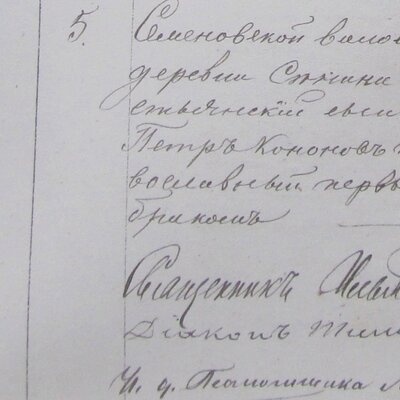 5. Семеновской волос
деревни
стьянскій сын
Петръ Кононовъ
вославный первы
бракомъ
Священникъ
Діаконъ Тим
И. д. Псаломщика